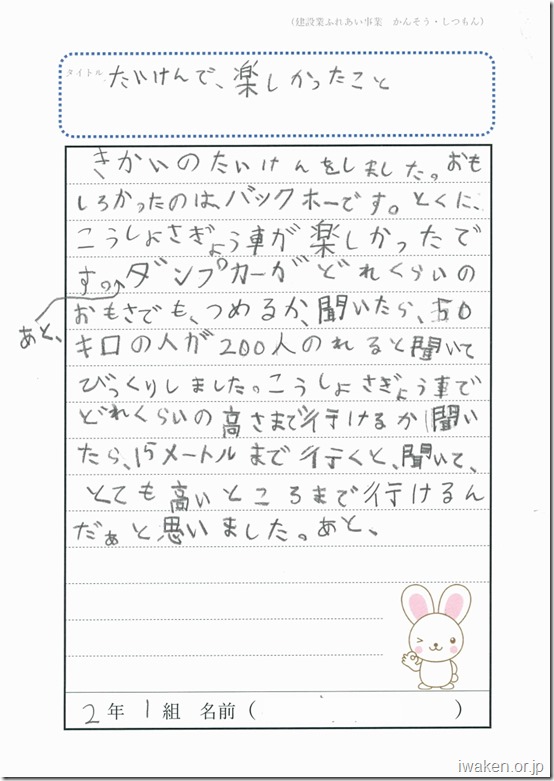 (建設業ふれあい事業 かんそう・しつもん)
タイトル たいけんで、楽しかったこと
きかいのたいけんをしました。おも
しろかったのは、バックホーです。とくに、
こうしょさぎょう車が楽しかったで
す。ダンプカーがどれくらいの
あと、
おもさでも、つめるか、聞いたら、50
キロの人が200人のれると聞いて
びっくりしました。こうしょさぎょう車で
どれくらいの高さまで行けるか聞い
たら、15メートルまで行くと、聞いて、
とても高いところまで行けるん
だぁと思いました。あと、
2年1組 名前( )
iwaken.or.jp